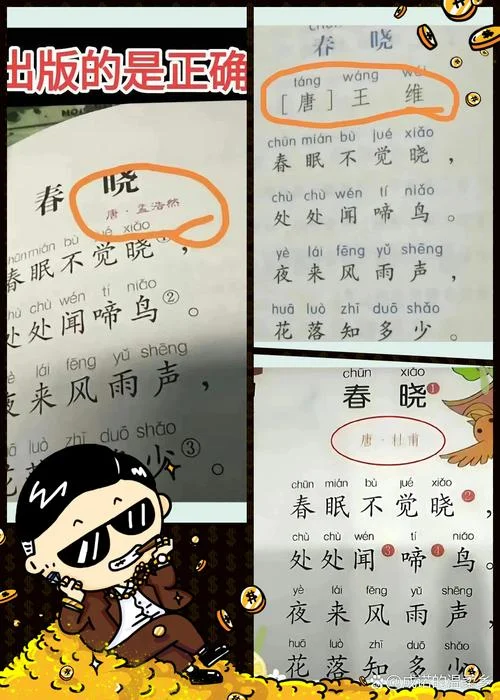 出版的是正确
春 晓
唐·孟浩然
mián bù jué xiǎo
春眠不觉晓①，
chù wén tí niǎo
处处闻啼鸟②。
lái fēng yǔ shēng
夜来风雨声，
luò zhī duō shǎo
少③。
春 晓
táng wáng wéi
［唐］王 维
chūn mián bù jué xiǎo
春眠不觉晓，
chù chù wén tí niǎo
处处闻啼鸟。
yè lái fēng yǔ shēng
夜来风雨声，
huā luò zhī duō shǎo
花落知多少。
chūn xiǎo
春晓①
唐·杜甫
chūn mián bù jué xiǎo
春眠不觉晓②，
chù chù wén tí niǎo
处处闻③啼④鸟。
yè lái fēng yǔ shēng
夜来风雨声
huā luò zhī duō shǎo
花落知多少